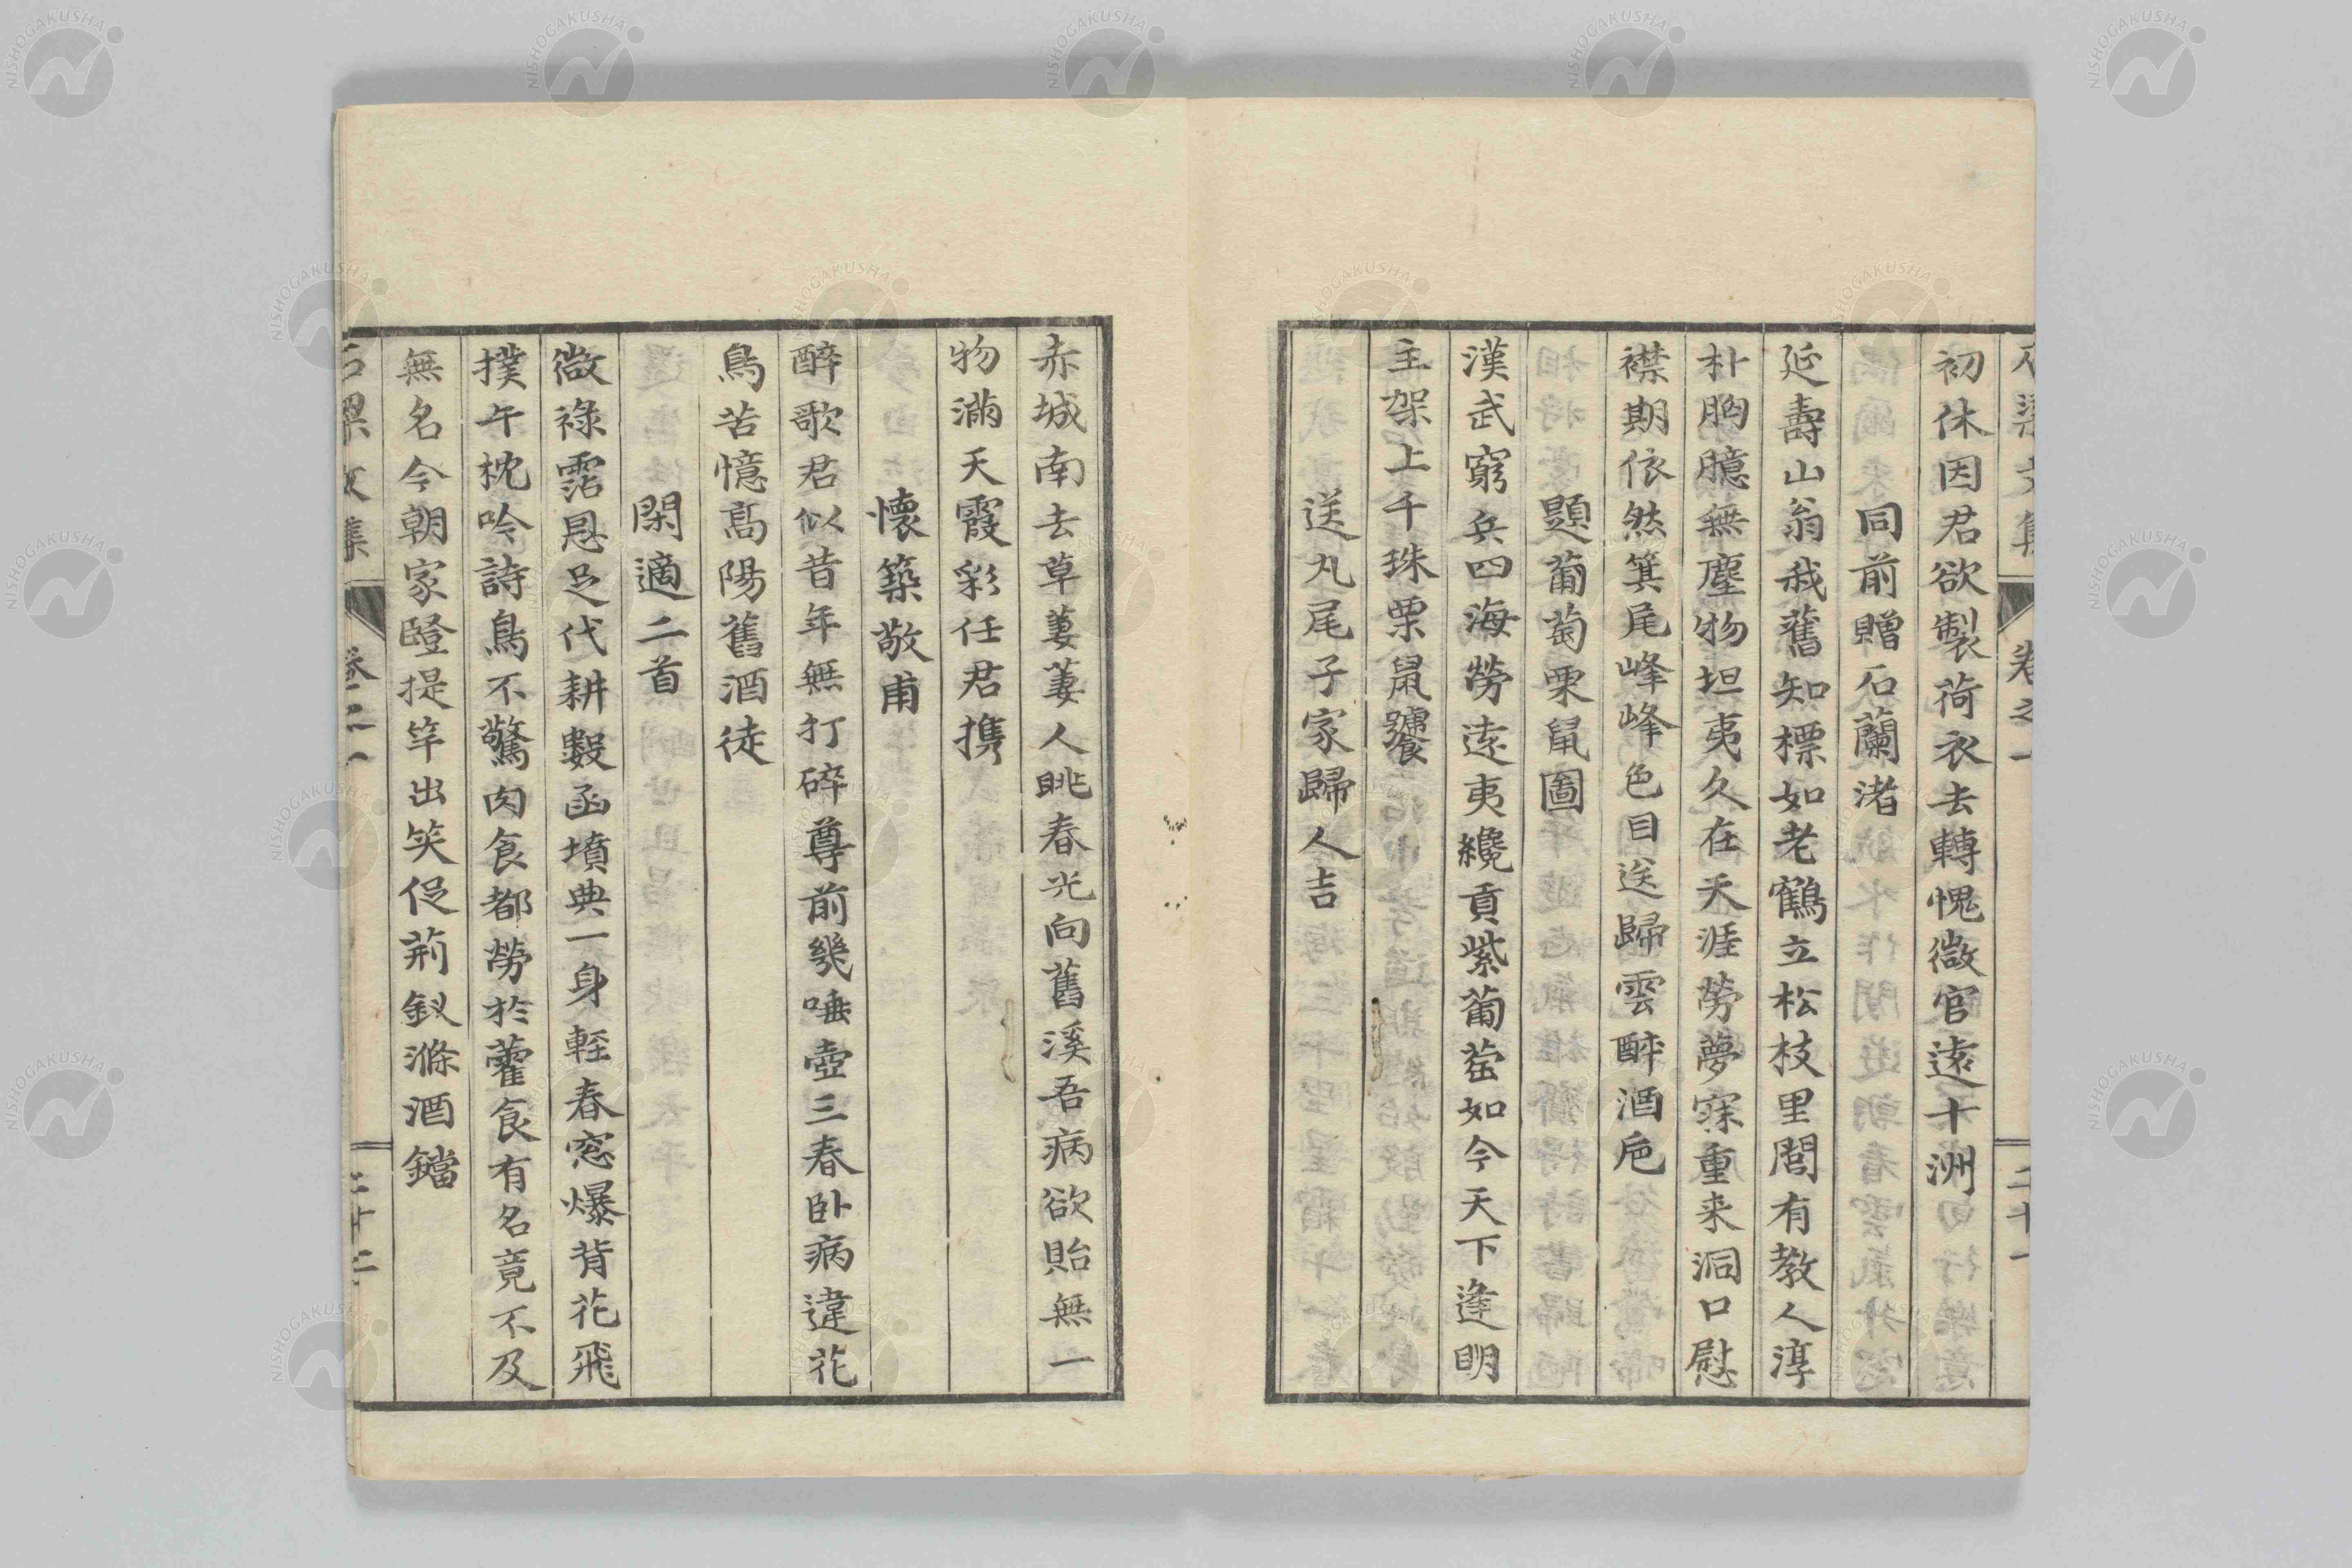 初休因君欲製荷衣去轉愧微官遠十洲
同前贈石蘭渚
延壽山翁我舊知標如老鶴立松枝里閭有教人淳
朴胸臆無塵物坦夷久在天涯勞夢寐重来洞口慰
襟期依然箕尾峰峰色目送歸雲醉酒巵
題葡萄栗鼠圖
漢武窮兵四海勞遠夷纔貢紫葡萄如今天下逢明
主架上千珠栗鼠饕
送丸尾子家歸人吉
赤城南去草萋萋人眺春光向舊溪吾病欲貽無一
物滿天霞彩任君携
懷築敬甫
醉歌君似昔年無打碎尊前幾唾壺三春卧病違花
鳥苦憶高陽舊酒徒
閑適二首
微祿霑恩足代耕數函墳典一身輕春窓爆背花飛
撲午枕吟詩鳥不驚肉食都勞於藿食有名竟不及
無名今朝家醫提竿出笑促荊釵滌酒鐺
卷之一
二十一
二十二
NISHOGAKUSHA